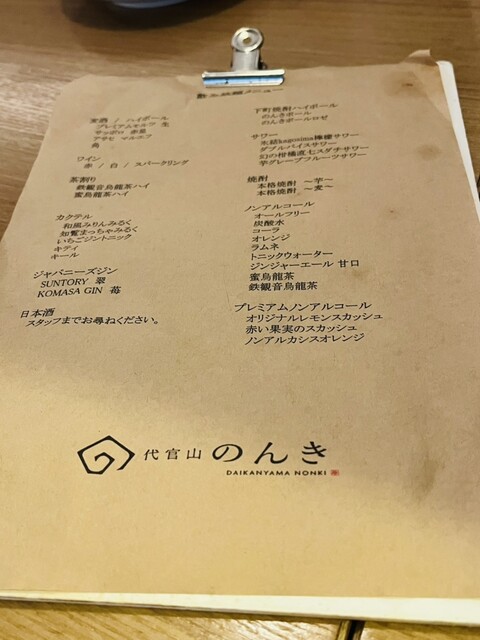 飲み放題メニュー
麦酒 / ハイボール
プレミアムモルツ 生
サッポロ 赤星
アサヒ マルエフ
角
ワイン
赤 / 白 / スパークリング
茶割り
鉄観音烏龍茶ハイ
蜜烏龍茶ハイ
カクテル
和風みりんみるく
知覧まっちゃみるく
いちごジントニック
キティ
キール
ジャパニーズジン
SUNTORY 翠
KOMASA GIN 苺
日本酒
スタッフまでお尋ねください。
下町焼酎ハイボール
のんきボール
のんきボールロゼ
サワー
氷結kagoshima檸檬サワー
ダブルバイスサワー
幻の柑橘直七スダチサワー
芋グレープフルーツサワー
焼酎
本格焼酎 〜芋〜
本格焼酎 〜麦〜
ノンアルコール
オールフリー
炭酸水
コーラ
オレンジ
ラムネ
トニックウォーター
ジンジャーエール 甘口
蜜烏龍茶
鉄観音烏龍茶
プレミアムノンアルコール
オリジナルレモンスカッシュ
赤い果実のスカッシュ
ノンアルカシスオレンジ
代官山 のんき
DAIKANYAMA NONKI